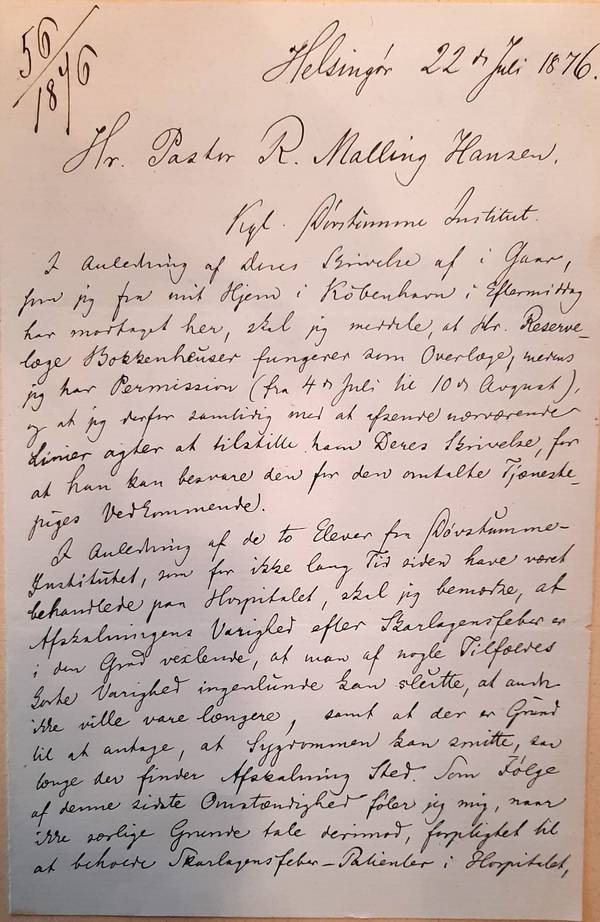 56/1876
Helsingør 22de Juli 1876.
Hr. Pastor R. Malling Hansen.
Kgl. Døvstumme Institut.
I Anledning af Deres Skrivelse af i Gaar,
som jeg fra mit Hjem i København i Eftermiddag
har modtaget her, skal jeg meddele, at Hr. Reserve-
læge Bokkenheuser fungerer som Overlæge, medens
jeg har Permission (fra 4de Juli til 10de Avgust),
og at jeg derfor samtidig med at afsende nærværende
Linier agter at tilstille ham Deres Skrivelse, for
at han kan besvare den for den omtalte Tjeneste-
piges Vedkommende.
I Anledning af de to Elever fra Døvstumme-
Institutet, som for ikke lang Tid siden have været
behandlede paa Hospitalet, skal jeg bemærke, at
Afskalningens Varighed efter Skarlagensfeber er
i den Grad vexlende, at man af nogle Tilfældes
korte Varighed ingenlunde kan slutte, at andre
ikke ville vare længere, samt at der er Grund
til at antage, at Sygdommen kan smitte, saa
længe der finder Afskalning Sted. Som Følge
af denne sidste Omstændighed føler jeg mig, naar
ikke særlige Grunde tale derimod, forpligtet til
at beholde Skarlagensfeber-Patienter i Hospitalet,